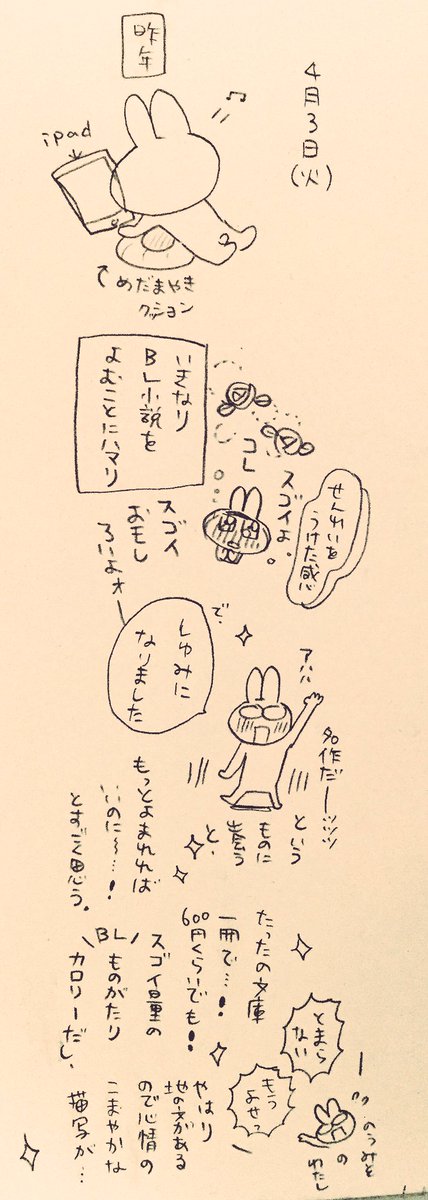 4月3日(火)
昨年
ipad
めだまやき
クッション
いきなり
BL小説を
よむことにハマり
せんれいを
うけた感
コレ
スゴイよ。
スゴイ
おもし
ろいよォー
で、
しゅみに
なりました
アハハ
名作だーッッッ
という
ものに
出会う
と、
もっとよまれれば
いいのに〜…!
とすごく思う。
たったの文庫
一冊で…!
600円くらいでも!
スゴイ量の
BL
ものがたり
カロリーだし、
とまら
ない
もう
よせっ
のうみそ
の
わたし
やはり
地の文がある
ので心情の
こまやかな
描写が…